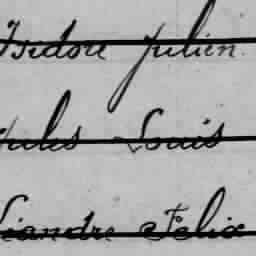 Isidore Julien
Jules Louis
Léandre Félix